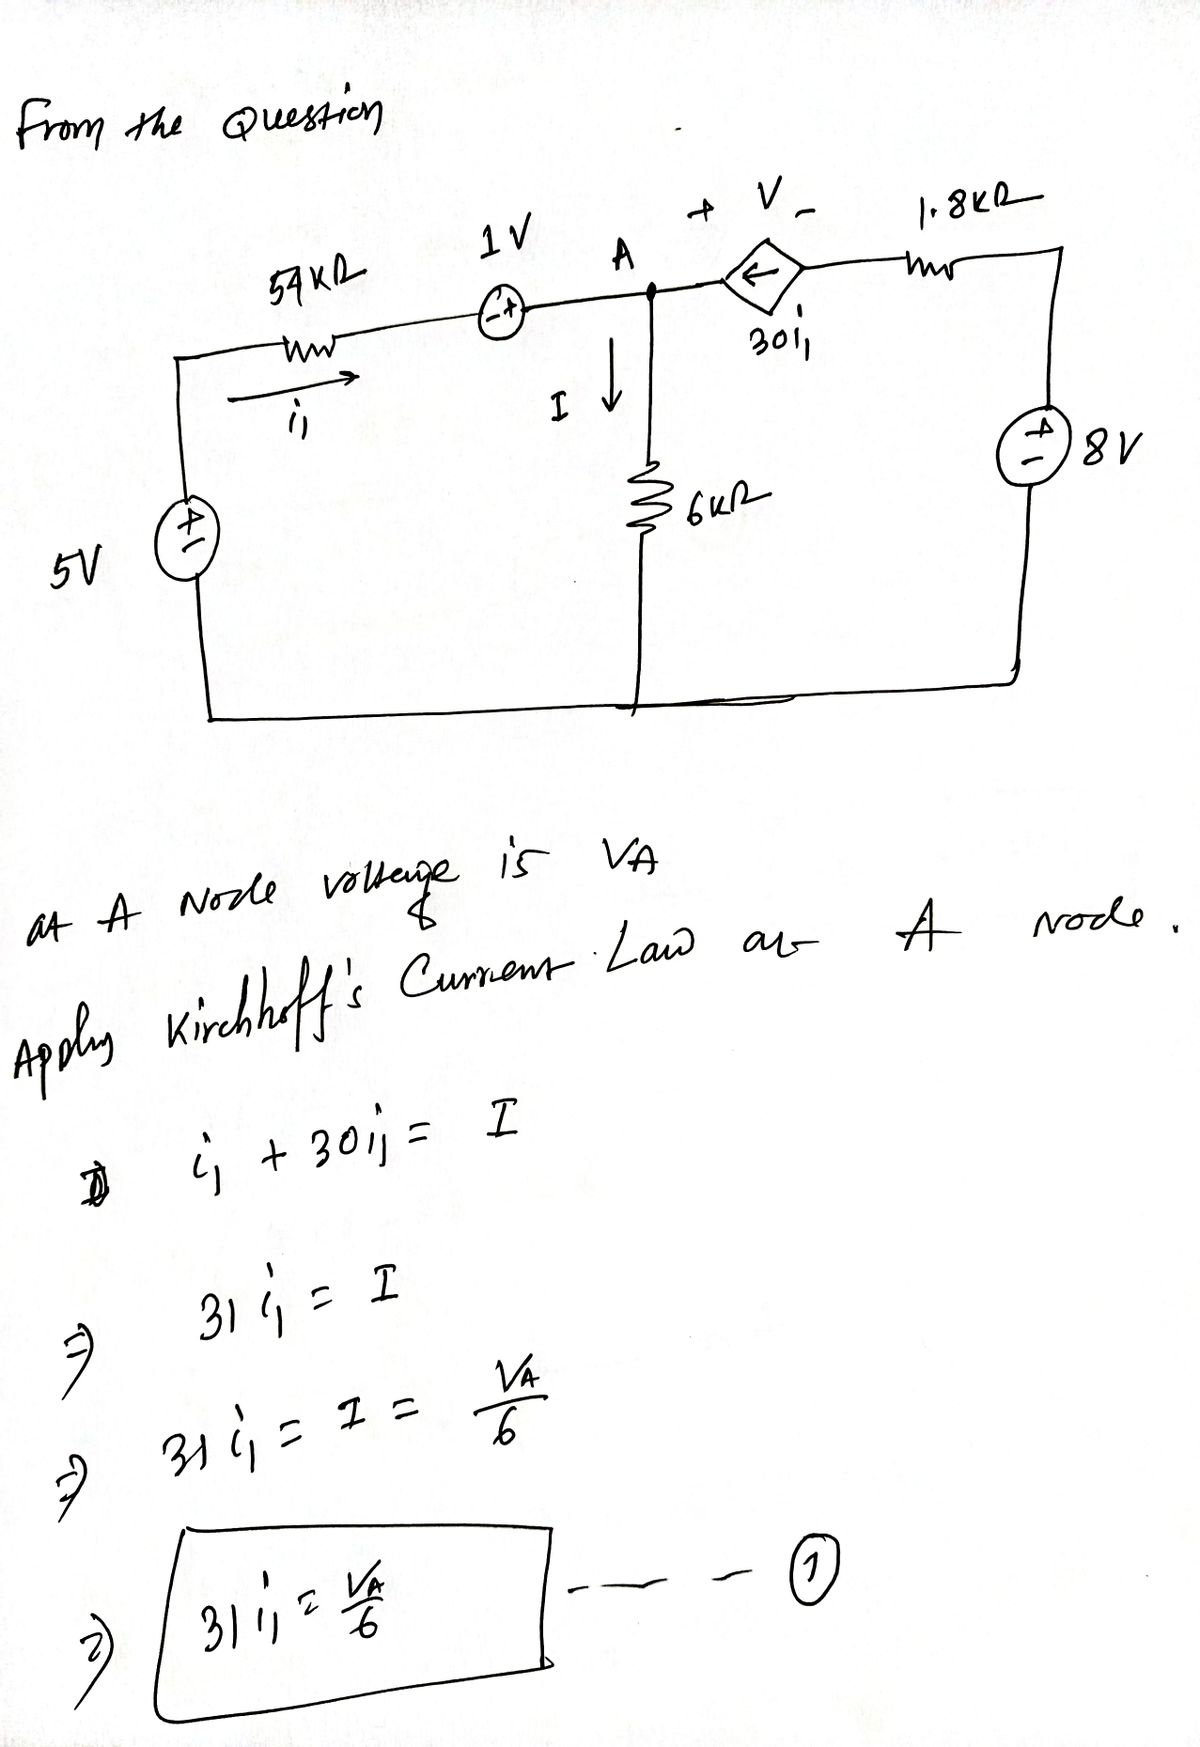 From the Question
1V
A
+ V -
1.8KΩ
54KΩ
- +
30i₁
i₁
I
+
-
8V
6KΩ
+
-
5V
at A Node voltage is VA
Apply Kirchhoff's Current Law at A Node.
i₁ + 30i₁ = I
⇒ 31 i₁ = I
⇒ 31 i₁ = I = VA/6
⇒ 31 i₁ = VA/6 ---- ①